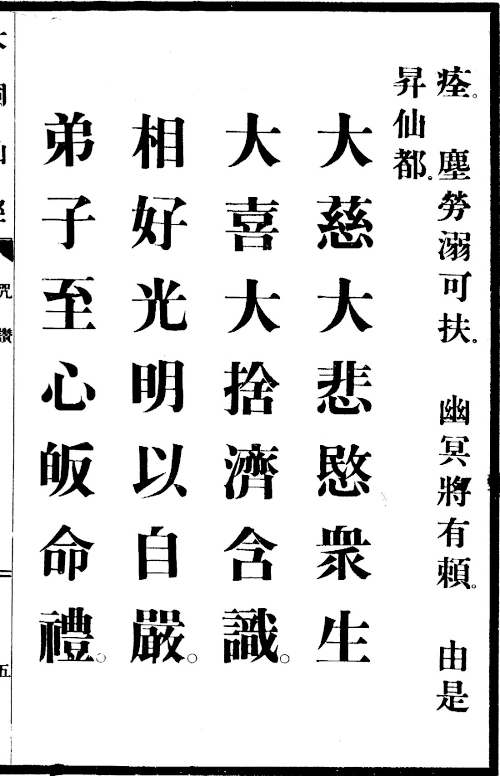 痊。塵勞溺可扶。幽冥將有賴。由是
昇仙都。
大慈大悲愍衆生
大喜大捨濟含識。
相好光明以自嚴。
弟子至心皈命禮。
咒讚
五